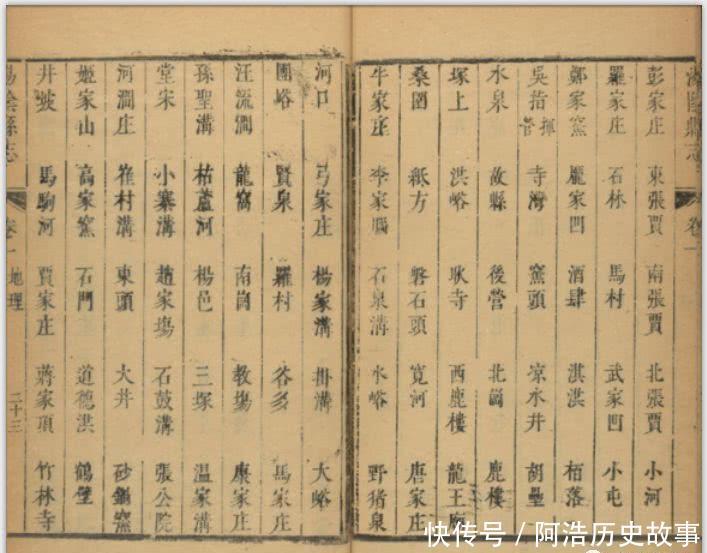 湯陰縣志 卷一
彭家庄 東張賈 南張賈 北張賈 小河
羅家庄 石林 馬村 武家凹 小屯
鄭家窯 龐家凹 酒肆 淇洪 栢落
吳指揮營 寺灣 窯頭 凉水井 胡壘
水泉 故縣 後營 北崗 鹿樓
塚上 洪峪 耿寺 西鹿樓 龍王廟
桑園 紙方 磐石頭 寬河 唐家庄
牛家庄 李家腦 石泉溝 水峪 野猪泉
河口 弓家庄 楊家溝 掛溝 大峪
團峪 賢泉 羅村 谷多 馬家庄
汪流澗 龍窩 南崗 教塲 康家庄
孫聖溝 枯蘆河 楊邑 三塚 温家溝
堂宋 小寨溝 趙家塲 石鼓溝 張公院
河澗庄 崔村溝 東頭 大井 砂鍋窯
姬家山 高家窯 石門 道德洪 鶴壁
井坡 馬駒河 賈家庄 蔣家頂 竹林寺
湯陰縣志 卷一 地理 二十三
快传号 / 阿浩历史故事